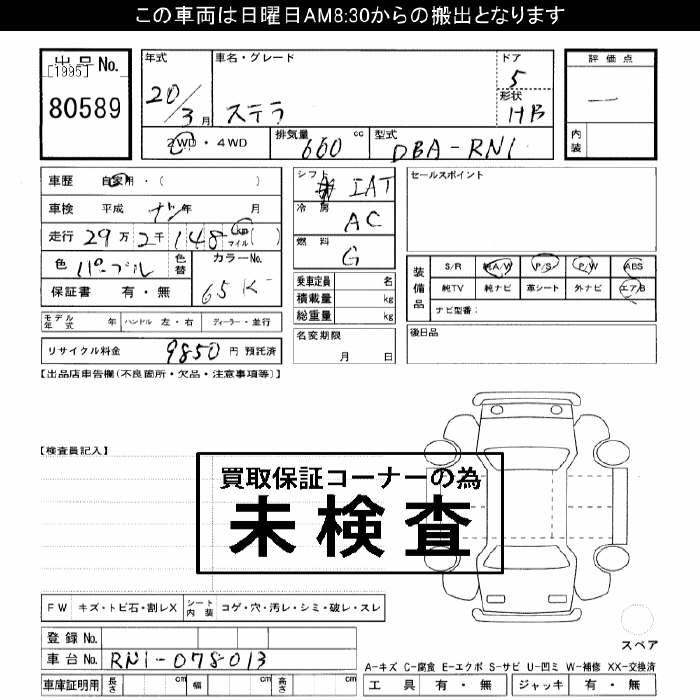 この車両は日曜日AM8:30からの搬出となります
出品No.
[1995]
80589
年式
20/3月
車名・グレード
ステラ
ドア
5
形状
HB
評価点
—
内装
2WD・4WD
排気量
660 cc
型式
DBA-RN1
車歴 自家用・( )
車検 平成 ナシ年 月
走行 29万2千148 km マイル ( )
色 パープル
色替
カラーNo.
65K
保証書 有・無
シフト
IAT
冷房
AC
燃料
G
乗車定員 名
積載量 kg
総重量 kg
セールスポイント
装備品
S/R 純A/W P/S P/W ABS
純TV 純ナビ 革シート 外ナビ エアB
ナビ型番:
モデル年式 年 ハンドル 左・右 ディーラー・並行
リサイクル料金 9850 円 預託済
名変期限
月 日
後日品
【出品店車告欄(不良箇所・欠品・注意事項等)】
【検査員記入】
買取保証コーナーの為
未検査
FW キズ・トビ石・割レX シート内装 コゲ・穴・汚レ・シミ・破レ・スレ
登録No.
車台No. RN1-078013
車庫証明用 長さ cm 幅 cm 高さ cm
スペア
A-キズ C-腐食 E-エクボ S-サビ U-凹ミ W-補修 XX-交換済
工具 有・無 ジャッキ 有・無